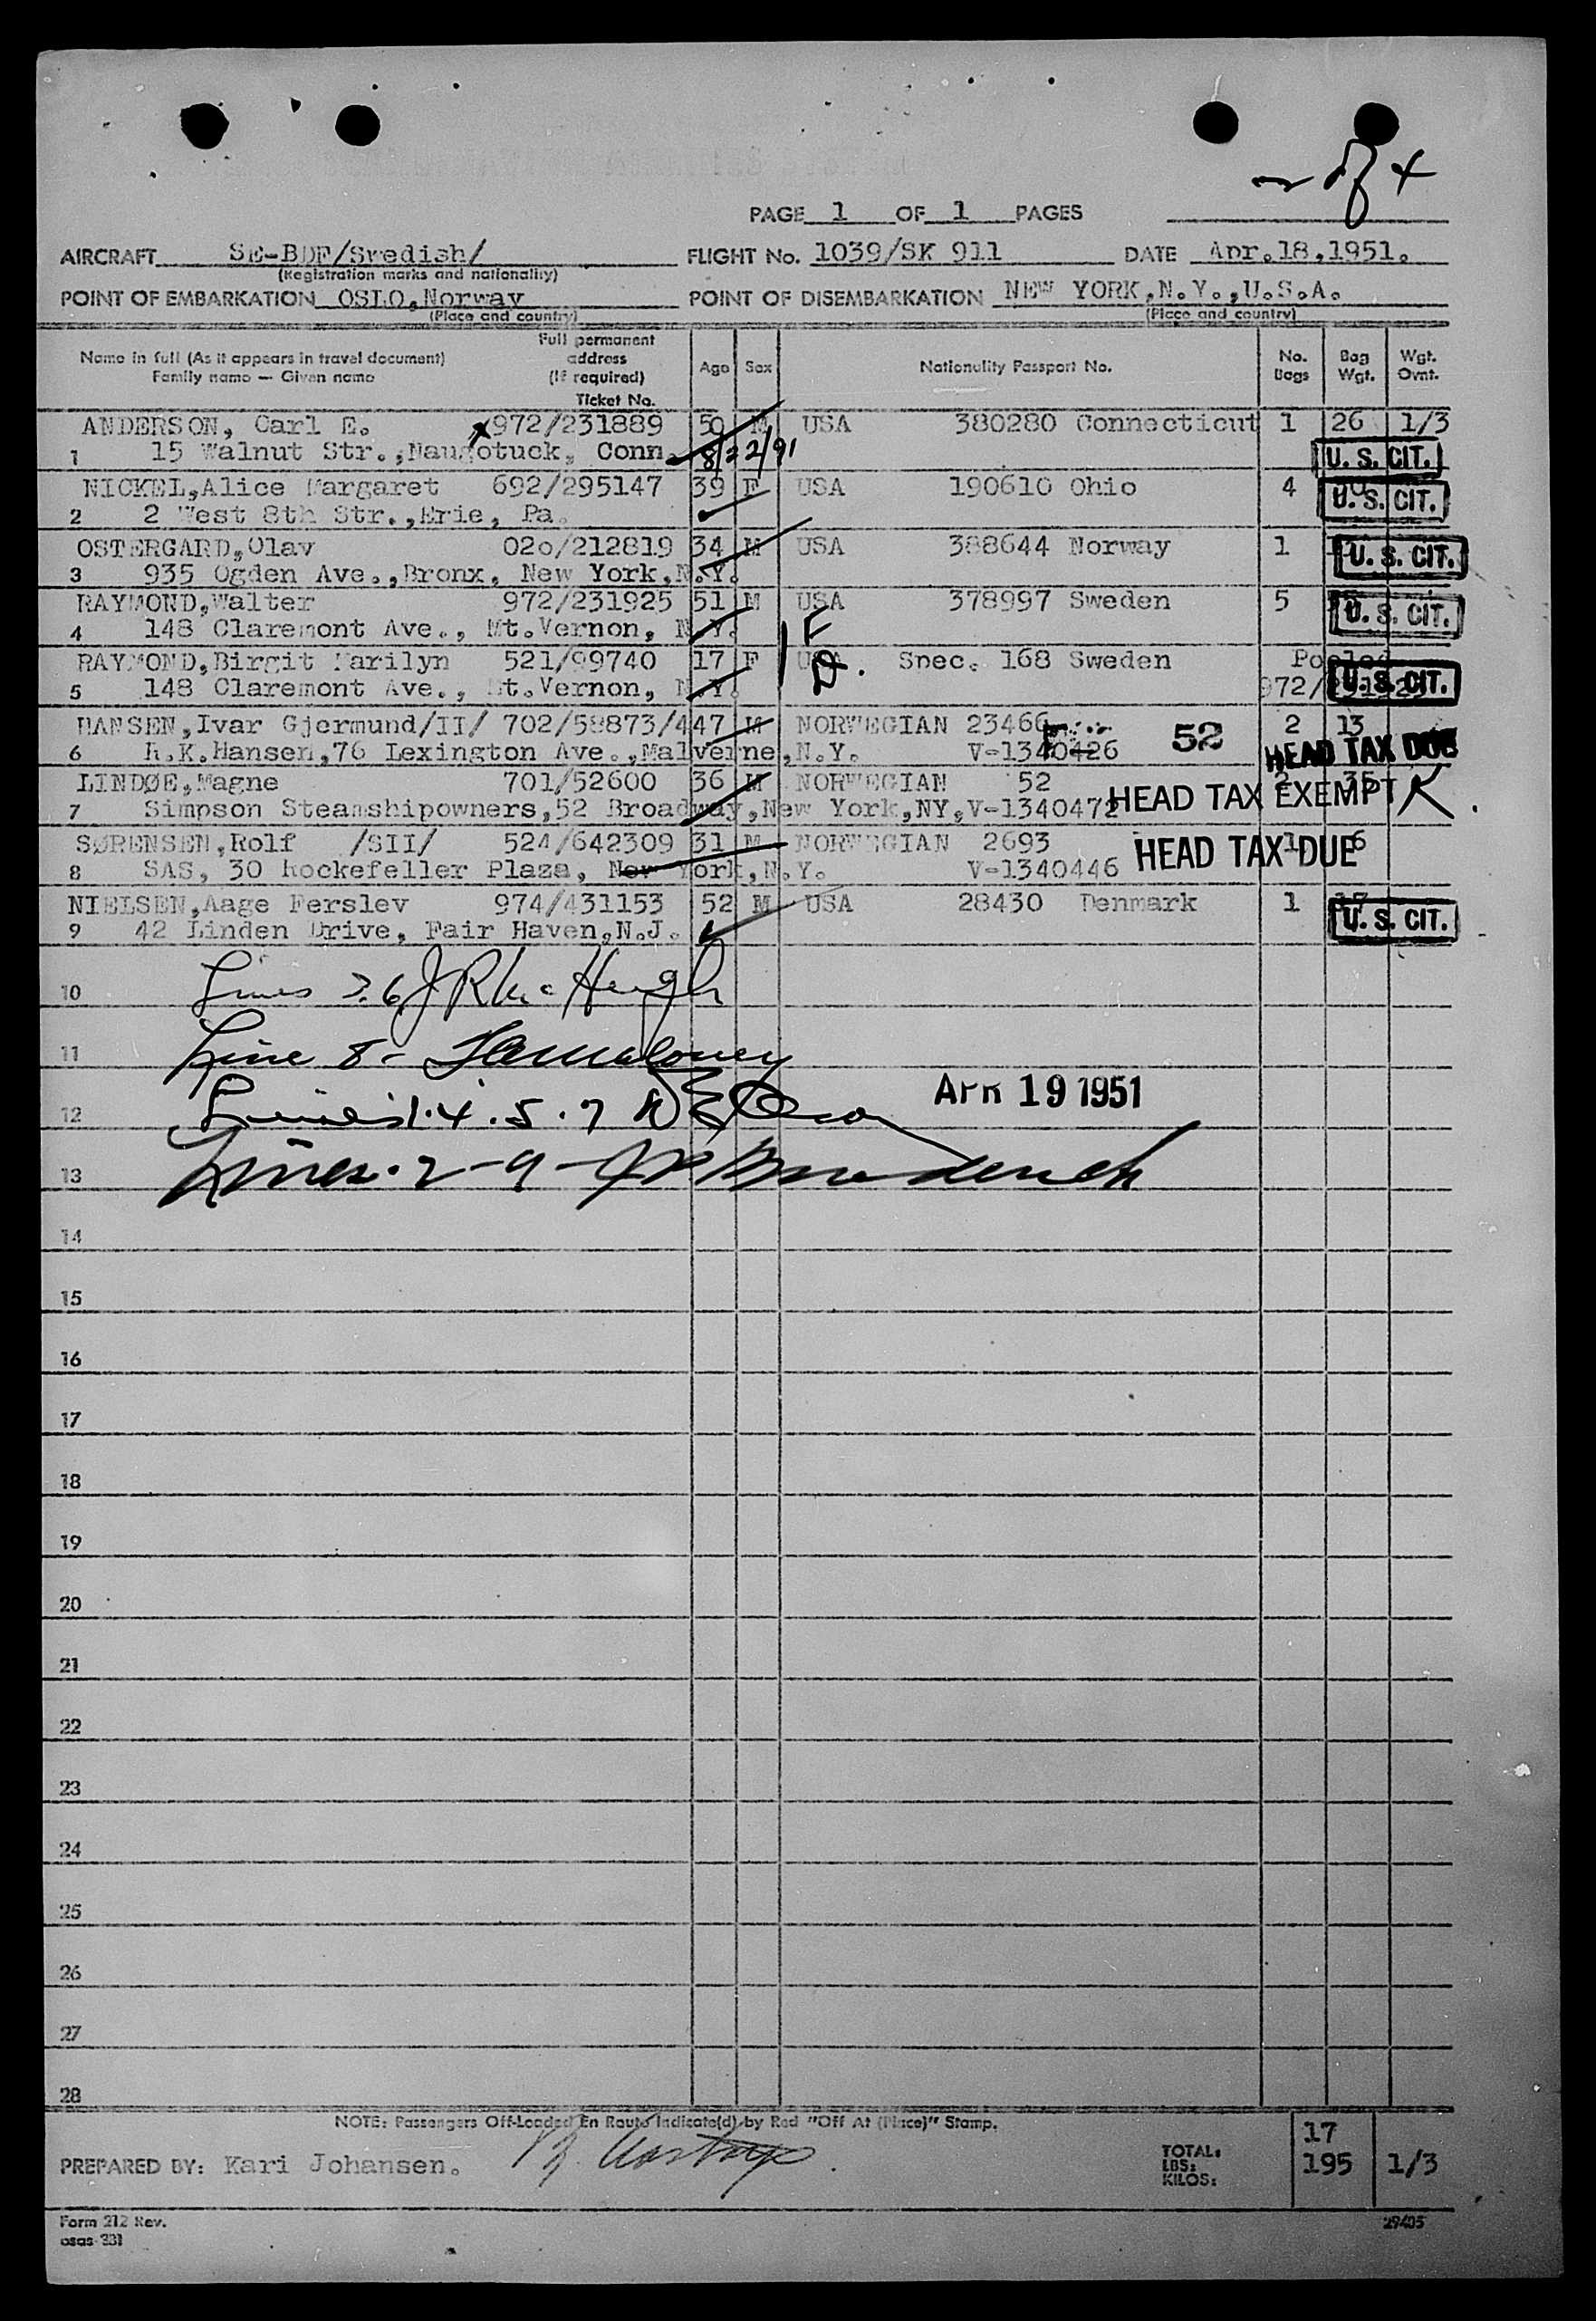 of 4
PAGE 1 OF 1 PAGES
AIRCRAFT SE-BDF/Swedish/ FLIGHT No. 1039/SK 911 DATE Apr.18,1951.
(Registration marks and nationality)
POINT OF EMBARKATION OSLO,Norway POINT OF DISEMBARKATION NEW YORK,N.Y.,U.S.A.
(Place and country) (Place and country)
Name in full (As it appears in travel document) Family name — Given name Full permanent address (If required) Ticket No. Age Sex Nationality Passport No. No. Bags Bag Wgt. Wgt. Ovnt.
ANDERSON, Carl E. x972/231889 50 M USA 380280 Connecticut 1 26 1/3
1 15 Walnut Str.,Naugotuck, Conn. 8/22/91 U. S. CIT.
NICKEL,Alice Margaret 692/295147 39 F USA 190610 Ohio 4
2 2 West 8th Str.,Erie, Pa. U. S. CIT.
OSTERGARD,Olav 020/212819 34 M USA 388644 Norway 1
3 935 Ogden Ave.,Bronx, New York,N.Y. U. S. CIT.
RAYMOND,Walter 972/231925 51 M USA 378997 Sweden 5
4 148 Claremont Ave., Mt.Vernon, N.Y. U. S. CIT.
1 F
RAYMOND,Birgit Marilyn 521/99740 17 F USA Spec. 168 Sweden Pooled
D.
5 148 Claremont Ave., Mt.Vernon, N.Y. 972/ U. S. CIT.
HANSEN,Ivar Gjermund/II/ 702/58873/4 47 M NORWEGIAN 23466 52 2 13
6 R.K.Hansen,76 Lexington Ave.,Malverne,N.Y. V-1340426 HEAD TAX DUE
LINDØE,Magne 701/52600 36 M NORWEGIAN 52 2 35
7 Simpson Steamshipowners,52 Broadway,New York,NY,V-1340472 HEAD TAX EXEMPT K.
SØRENSEN,Rolf /SII/ 524/642309 31 M NORWEGIAN 2693 1 6
8 SAS, 30 Rockefeller Plaza, New York,N.Y. V-1340446 HEAD TAX DUE
NIELSEN,Aage Ferslev 974/431153 52 M USA 28430 Denmark 1 17
9 42 Linden Drive, Fair Haven,N.J. U. S. CIT.
10 Lines 3.6 J R McHugh
11 Line 8-
12 Lines 1.4.5.7 APR 19 1951
13 Lines 2-9-
14
15
16
17
18
19
20
21
22
23
24
25
26
27
28
NOTE: Passengers Off-Loaded En Route Indicate(d) by Red "Off At (Place)" Stamp.
PREPARED BY: Kari Johansen. TOTAL: LBS: KILOS: 17 195 1/3
Form 212 Rev.
osas 331
29405